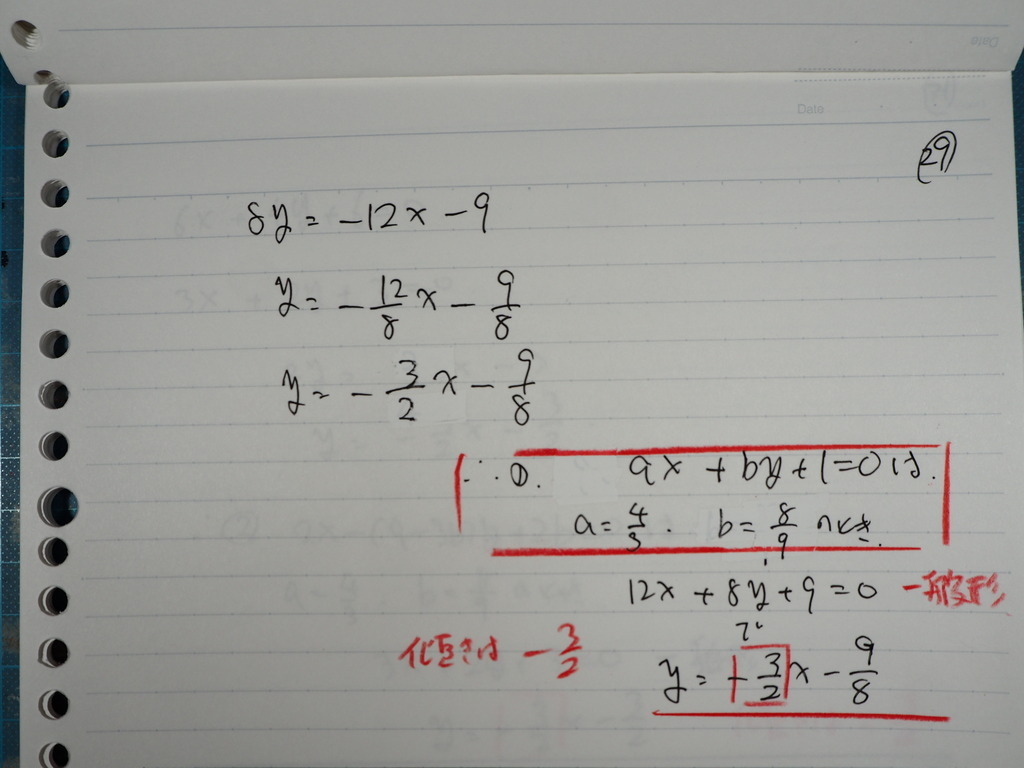 Date
29
8y = -12x - 9
y = - 12/8 x - 9/8
y = - 3/2 x - 9/8
∴ ①. ax + by + 1 = 0 は.
a = 4/3. b = 8/9 のとき.
12x + 8y + 9 = 0 一般形
で
傾きは - 3/2 y = - 3/2 x - 9/8